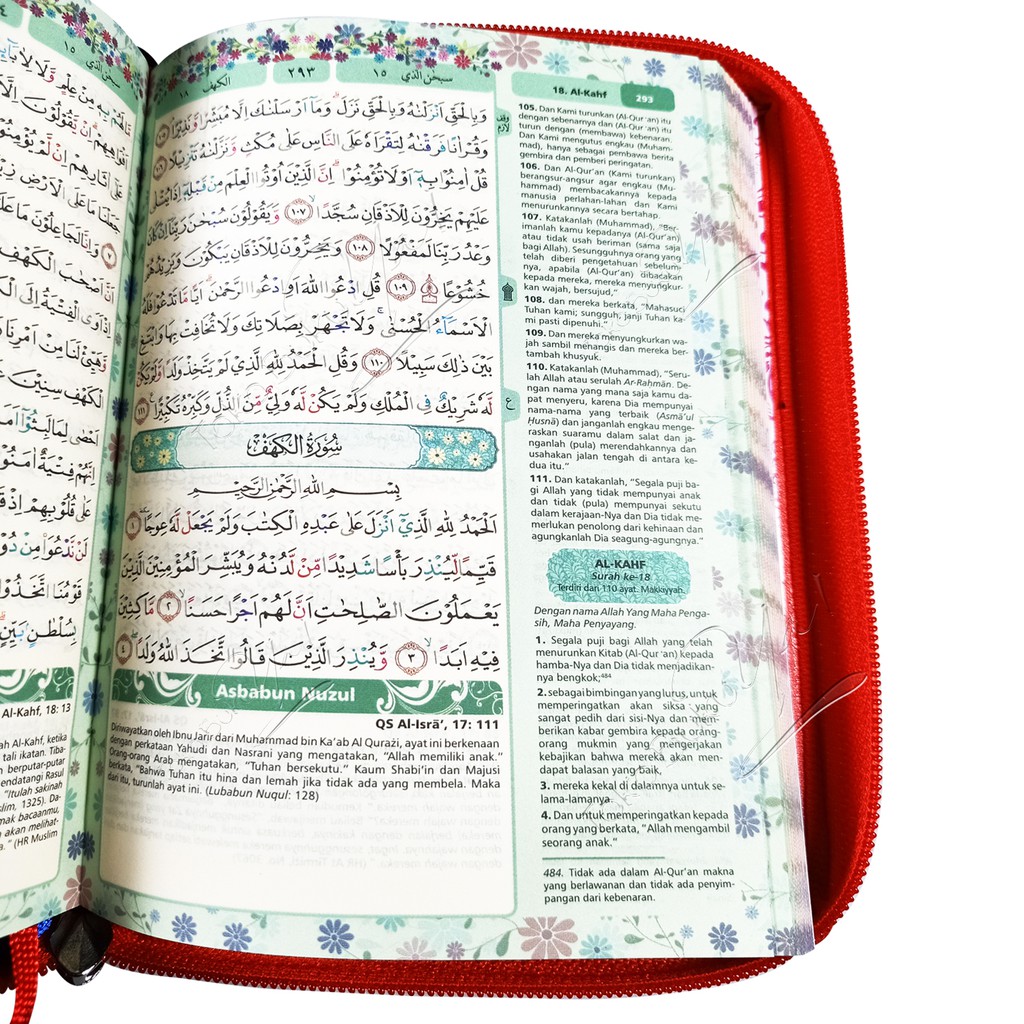 سبحن الذي ١٥
٢٩٣
الكهف ١٨
وَبِالْحَقِّ اَنْزَلْنٰهُ وَبِالْحَقِّ نَزَلَۗ وَمَآ اَرْسَلْنٰكَ اِلَّا مُبَشِّرًا وَّنَذِيْرًاۘ ١٠٥
وَقُرْاٰنًا فَرَقْنٰهُ لِتَقْرَاَهٗ عَلَى النَّاسِ عَلٰى مُكْثٍ وَّنَزَّلْنٰهُ تَنْزِيْلًا ١٠٦
قُلْ اٰمِنُوْا بِهٖٓ اَوْ لَا تُؤْمِنُوْاۗ اِنَّ الَّذِيْنَ اُوْتُوا الْعِلْمَ مِنْ قَبْلِهٖٓ اِذَا يُتْلٰى
عَلَيْهِمْ يَخِرُّوْنَ لِلْاَذْقَانِ سُجَّدًاۙ ١٠٧ وَّيَقُوْلُوْنَ سُبْحٰنَ رَبِّنَآ اِنْ كَانَ
وَعْدُ رَبِّنَا لَمَفْعُوْلًا ١٠٨ وَيَخِرُّوْنَ لِلْاَذْقَانِ يَبْكُوْنَ وَيَزِيْدُهُمْ
خُشُوْعًا ١٠٩ قُلِ ادْعُوا اللّٰهَ اَوِ ادْعُوا الرَّحْمٰنَۗ اَيًّا مَّا تَدْعُوْا فَلَهُ
الْاَسْمَاۤءُ الْحُسْنٰىۚ وَلَا تَجْهَرْ بِصَلَاتِكَ وَلَا تُخَافِتْ بِهَا وَابْتَغِ
بَيْنَ ذٰلِكَ سَبِيْلًا ١١٠ وَقُلِ الْحَمْدُ لِلّٰهِ الَّذِيْ لَمْ يَتَّخِذْ وَلَدًا وَّلَمْ يَكُنْ
لَّهٗ شَرِيْكٌ فِى الْمُلْكِ وَلَمْ يَكُنْ لَّهٗ وَلِيٌّ مِّنَ الذُّلِّ وَكَبِّرْهُ تَكْبِيْرًا ١١١
سُوْرَةُ الْكَهْفِ
بِسْمِ اللّٰهِ الرَّحْمٰنِ الرَّحِيْمِ
اَلْحَمْدُ لِلّٰهِ الَّذِيْٓ اَنْزَلَ عَلٰى عَبْدِهِ الْكِتٰبَ وَلَمْ يَجْعَلْ لَّهٗ عِوَجًاۜ ١
قَيِّمًا لِّيُنْذِرَ بَأْسًا شَدِيْدًا مِّنْ لَّدُنْهُ وَيُبَشِّرَ الْمُؤْمِنِيْنَ الَّذِيْنَ
يَعْمَلُوْنَ الصّٰلِحٰتِ اَنَّ لَهُمْ اَجْرًا حَسَنًاۙ ٢ مَّاكِثِيْنَ
فِيْهِ اَبَدًاۙ ٣ وَّيُنْذِرَ الَّذِيْنَ قَالُوا اتَّخَذَ اللّٰهُ وَلَدًا ٤
Asbabun Nuzul
QS Al-Isrā’, 17: 111
Diriwayatkan oleh Ibnu Jarir dari Muhammad bin Ka'ab Al Qurażi, ayat ini berkenaan
dengan perkataan Yahudi dan Nasrani yang mengatakan, “Allah memiliki anak.”
Orang-orang Arab mengatakan, “Tuhan bersekutu.” Kaum Shabi'in dan Majusi
berkata, “Bahwa Tuhan itu hina dan lemah jika tidak ada yang membela. Maka
dari itu, turunlah ayat ini. (Lubabun Nuqul: 128)
18. Al-Kahf 293
105. Dan Kami turunkan (Al-Qur'an) itu
dengan sebenarnya dan (Al-Qur'an) itu
turun dengan (membawa) kebenaran.
Dan Kami mengutus engkau (Muham-
mad), hanya sebagai pembawa berita
gembira dan pemberi peringatan.
106. Dan Al-Qur'an (Kami turunkan)
berangsur-angsur agar engkau (Mu-
hammad) membacakannya kepada
manusia perlahan-lahan dan Kami
menurunkannya secara bertahap.
107. Katakanlah (Muhammad), “Ber-
imanlah kamu kepadanya (Al-Qur'an)
atau tidak usah beriman (sama saja
bagi Allah). Sesungguhnya orang yang
telah diberi pengetahuan sebelum-
nya, apabila (Al-Qur'an) dibacakan
kepada mereka, mereka menyungkur-
kan wajah, bersujud,”
108. dan mereka berkata, “Mahasuci
Tuhan kami; sungguh, janji Tuhan ka-
mi pasti dipenuhi.”
109. Dan mereka menyungkurkan wa-
jah sambil menangis dan mereka ber-
tambah khusyuk.
110. Katakanlah (Muhammad), “Seru-
lah Allah atau serulah Ar-Raḥmān. De-
ngan nama yang mana saja kamu da-
pat menyeru, karena Dia mempunyai
nama-nama yang terbaik (Asmā'ul
Ḥusnā) dan janganlah engkau menge-
raskan suaramu dalam salat dan ja-
nganlah (pula) merendahkannya dan
usahakan jalan tengah di antara ke-
dua itu.”
111. Dan katakanlah, “Segala puji ba-
gi Allah yang tidak mempunyai anak
dan tidak (pula) mempunyai sekutu
dalam kerajaan-Nya dan Dia tidak me-
merlukan penolong dari kehinaan dan
agungkanlah Dia seagung-agungnya.”
AL-KAHF
Surah ke-18
Terdiri dari 110 ayat. Makkiyyah.
Dengan nama Allah Yang Maha Penga-
sih, Maha Penyayang.
1. Segala puji bagi Allah yang telah
menurunkan Kitab (Al-Qur'an) kepada
hamba-Nya dan Dia tidak menjadikan-
nya bengkok;484
2. sebagai bimbingan yang lurus, untuk
memperingatkan akan siksa yang
sangat pedih dari sisi-Nya dan mem-
berikan kabar gembira kepada orang-
orang mukmin yang mengerjakan
kebajikan bahwa mereka akan men-
dapat balasan yang baik,
3. mereka kekal di dalamnya untuk se-
lama-lamanya.
4. Dan untuk memperingatkan kepada
orang yang berkata, “Allah mengambil
seorang anak.”
484. Tidak ada dalam Al-Qur'an makna
yang berlawanan dan tidak ada penyim-
pangan dari kebenaran.
Al-Kahf, 18: 13